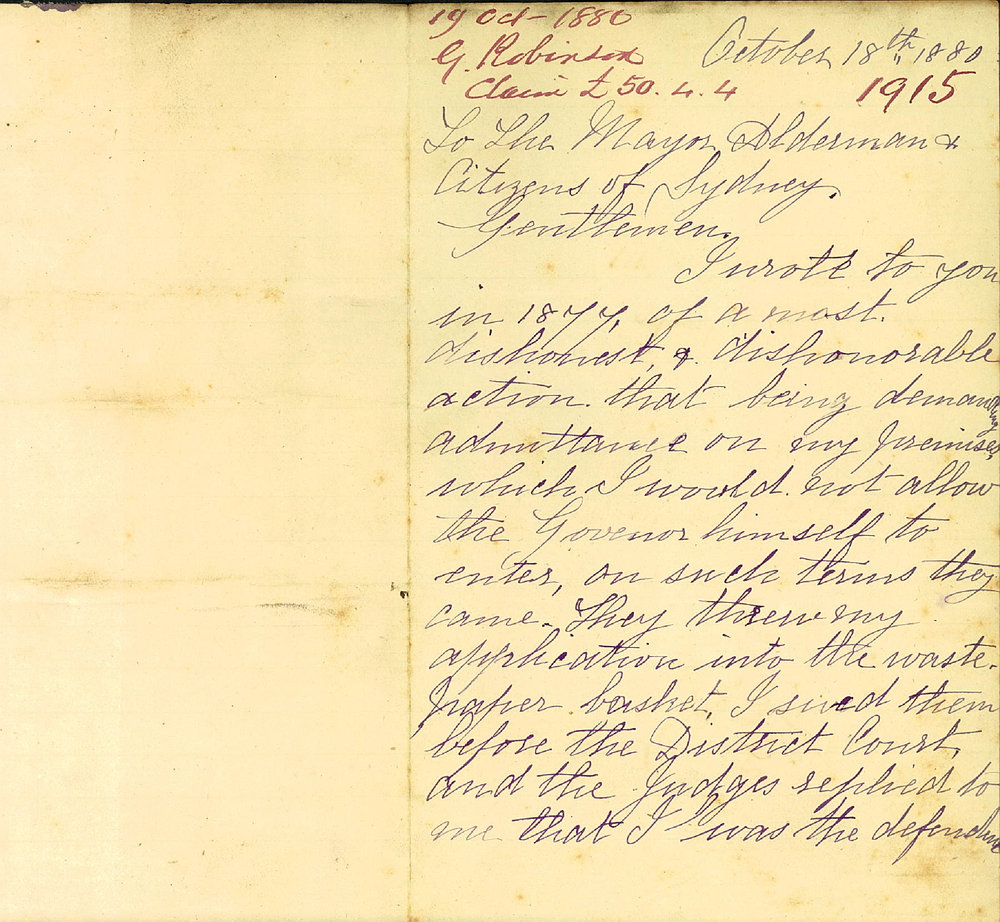 19 Oct - 1880
G. Robinson
Claim £ 50. 4. 4
October 18th 1880
1915
To The Mayor Alderman &
Citizens of Sydney.
Gentlemen.
I wrote to you
in 1877, of a most.
dishonest, & dishonorable
action. that being demanding
admittance on my premises,
which I would not allow
the Govenor himself to
enter, on such terms they
came. They threw my
application into the waste-
paper basket, I sued them
before the District Court,
and the Judges replied to
me that I was the defendant